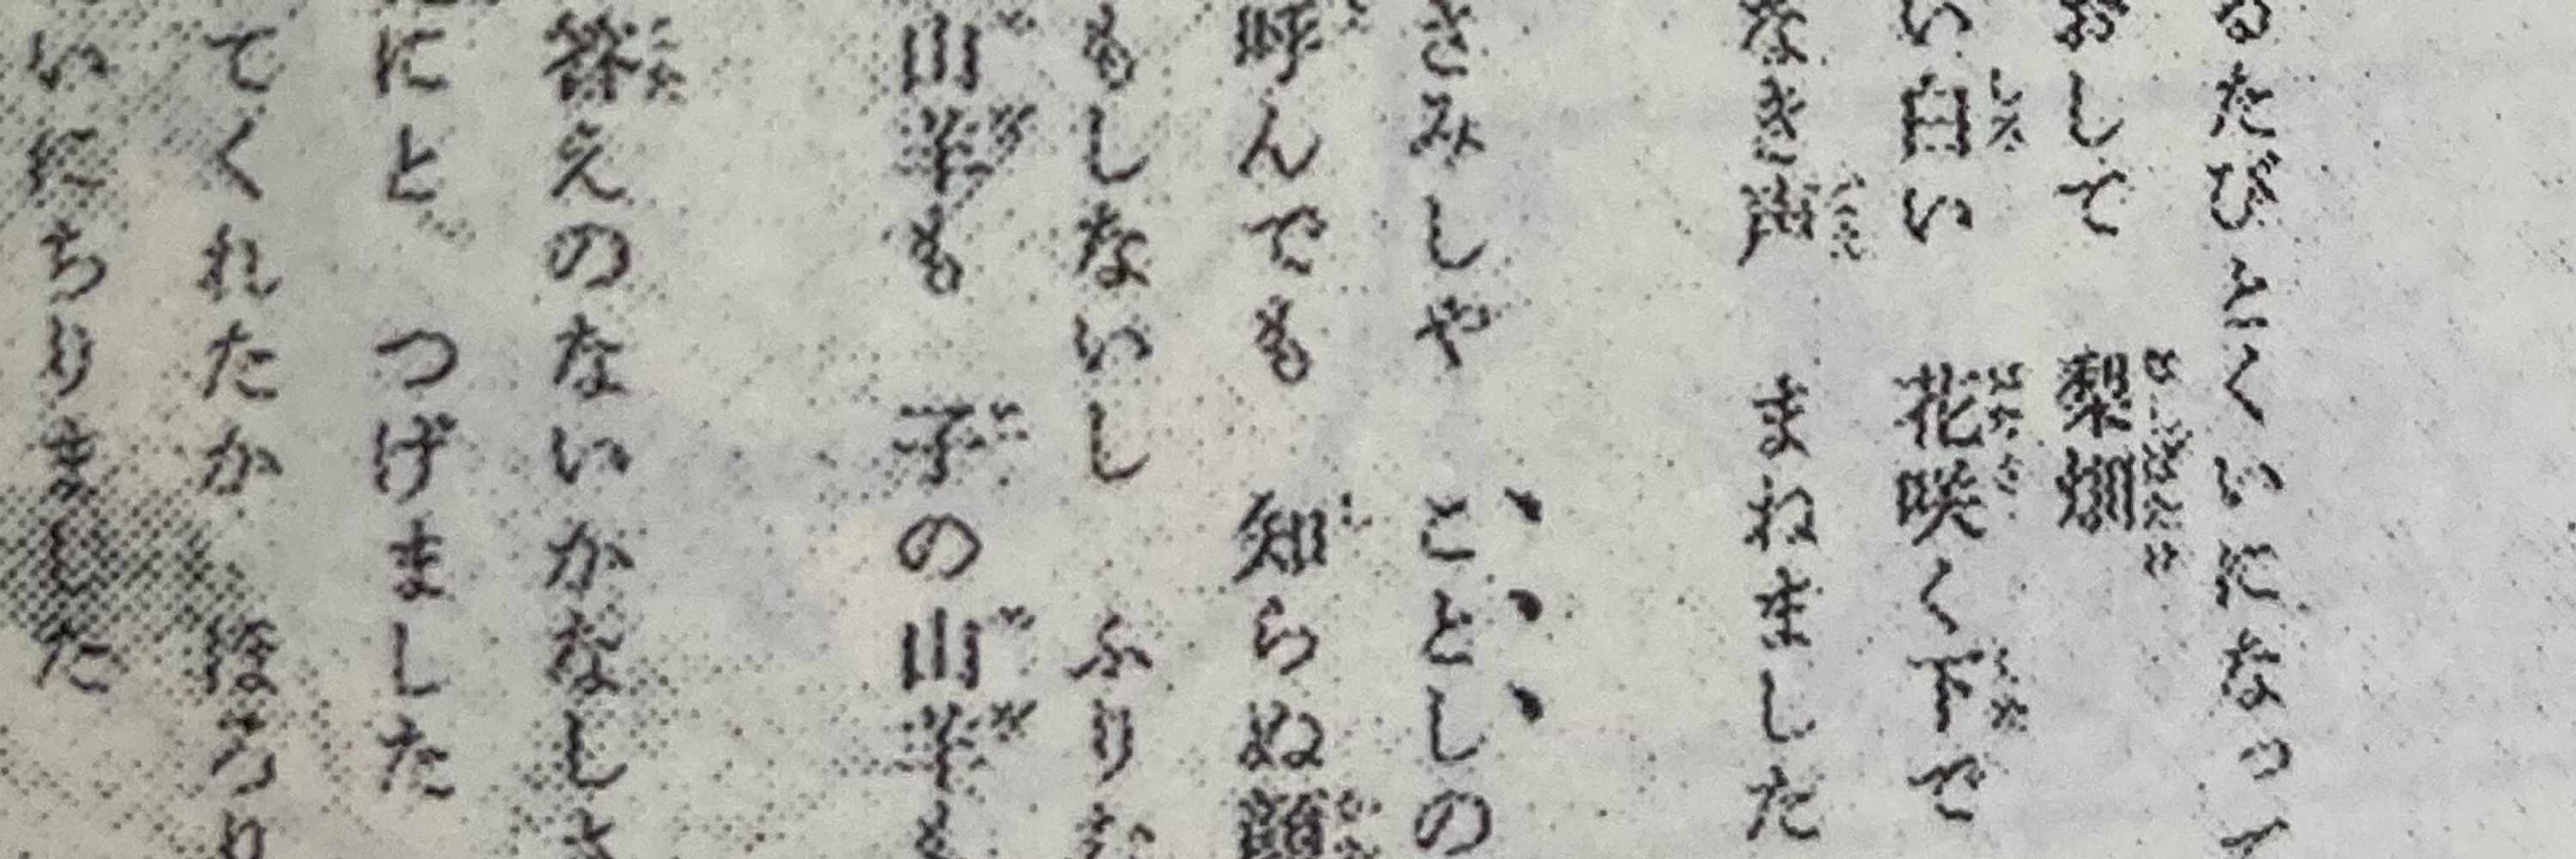 るたびとくいになっ
おして 梨畑
い白い 花咲く下で
なき声 まねました
さみしや ことしの
呼んでも 知らぬ顔
もしないし ふりむ
山羊も 子の山羊も
答えのないかなしさ
にと つげました
てくれたか ほろり
いにちりました